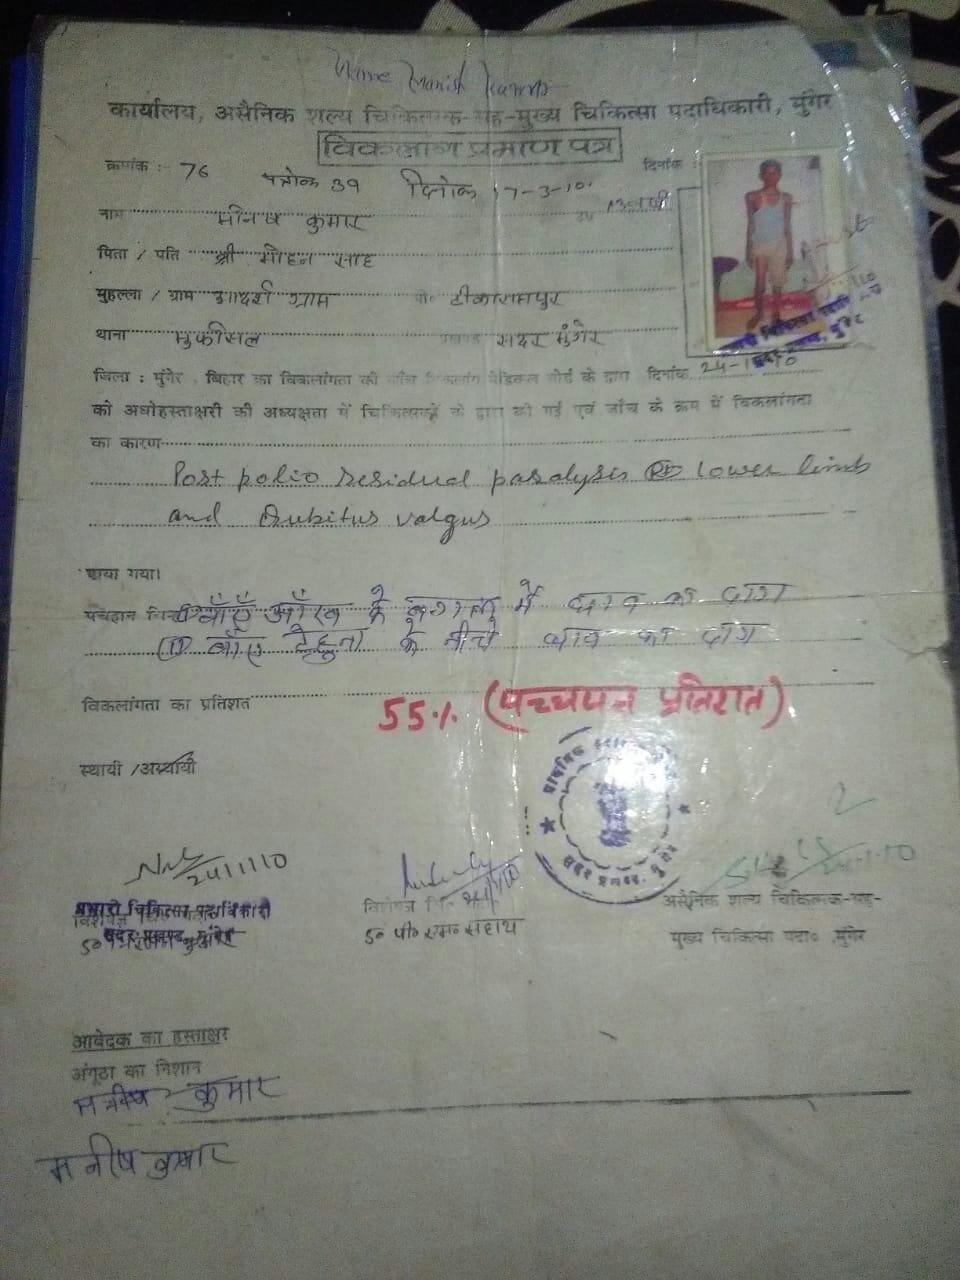 Name Manish Kumar
कार्यालय, असैनिक शल्य चिकित्सक-सह-मुख्य चिकित्सा पदाधिकारी, मुंगेर
विकलांग प्रमाण पत्र
क्रमांक :- 76 पत्रांक 39 दिनांक 17-3-10 दिनांक
नाम मनिष कुमार
पिता / पति श्री मोहन साह
मुहल्ला / ग्राम आदर्श ग्राम पो० टीकारामपुर
थाना मुफसिल सदर मुंगेर
जिला : मुंगेर, बिहार का विकलांगता की जाँच विकलांग मेडिकल बोर्ड के द्वारा दिनांक
को अधोहस्ताक्षरी की अध्यक्षता में चिकित्सकों के द्वारा की गई एवं जाँच के क्रम में विकलांगता
का कारण
Post polio residual paralysis Lower limb
and Cubitus valgus
पाया गया।
बाँएँ आँख के बगल में घाव का दाग
(ii) बाँए ठेहुना के नीचे घाव का दाग
विकलांगता का प्रतिशत 55% (पच्चपन प्रतिशत)
स्थायी /अस्थायी
24/1/10
प्रभारी चिकित्सा पदाधिकारी
सदर प्रखण्ड, मुंगेर
डा० पी० एम० सहाय
असैनिक शल्य चिकित्सक-सह-
मुख्य चिकित्सा पदा० मुंगेर
आवेदक का हस्ताक्षर
अंगूठा का निशान
मनीष कुमार
मनीष कुमार